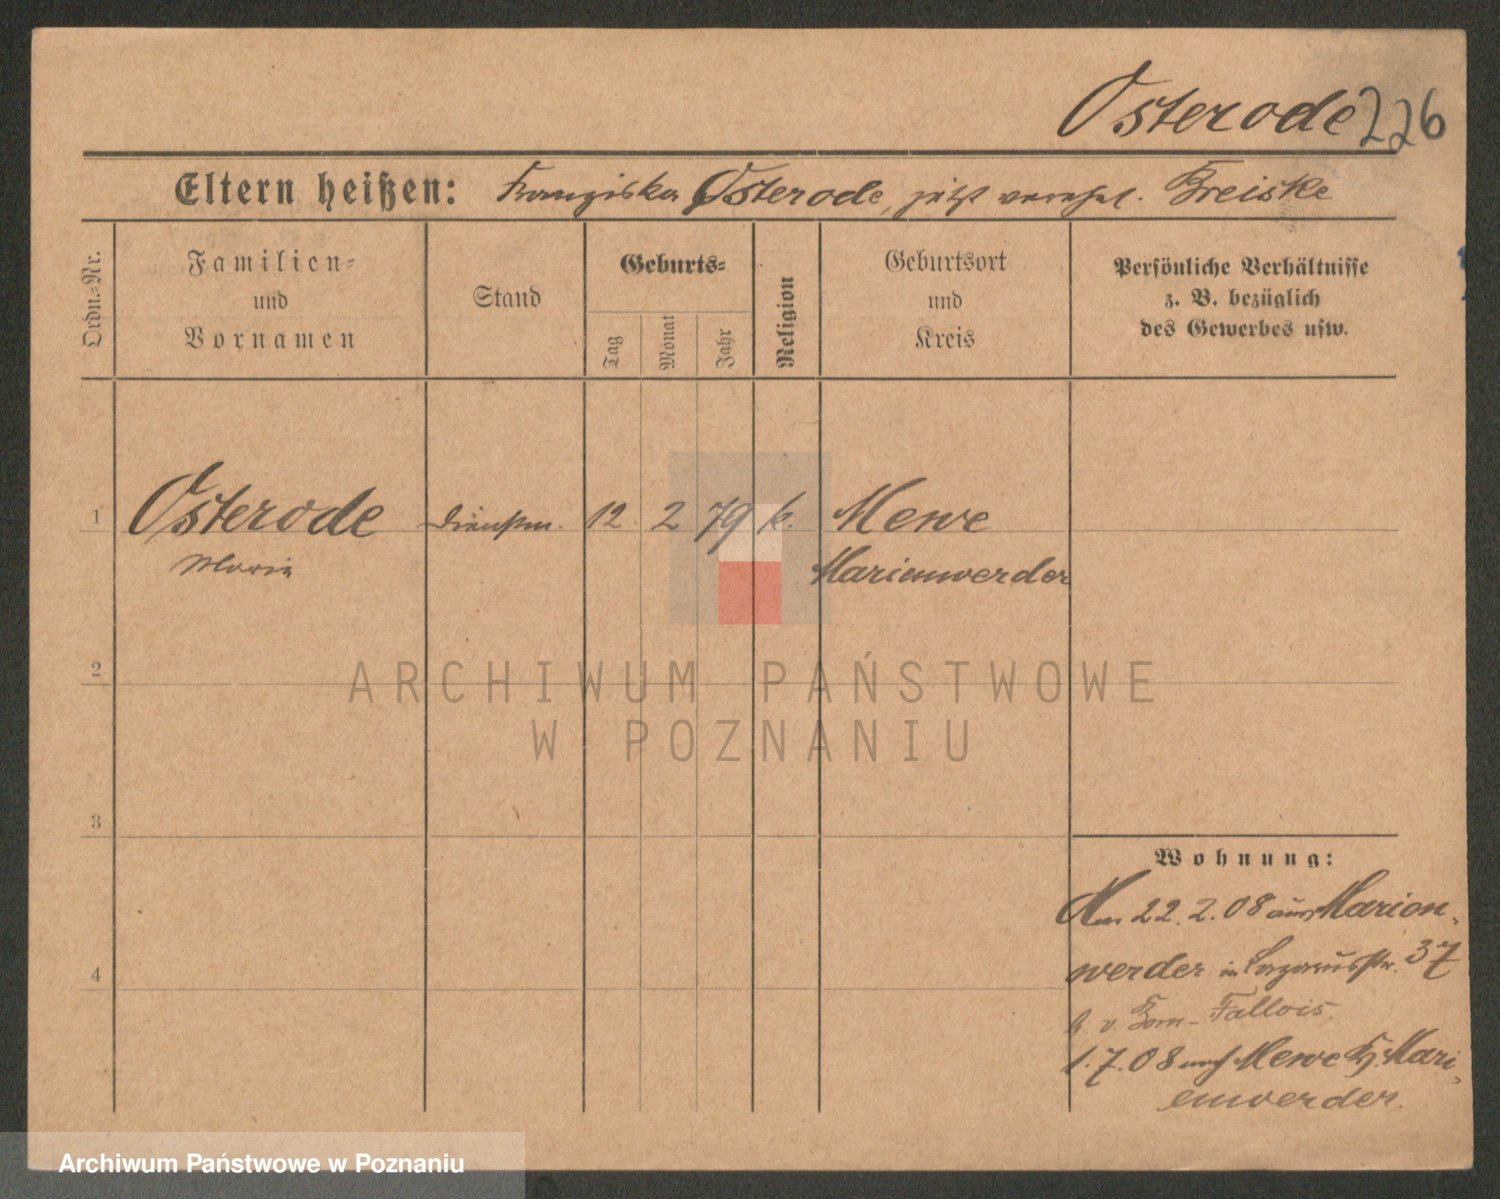 Osterode 226
Eltern heißen: Franziska Osterode, jetzt verehel. Kreiske
Ordn.-Nr.
Familien-
und
Vornamen
Stand
Geburts-
Tag
Monat
Jahr
Religion
Geburtsort
und
Kreis
Persönliche Verhältnisse
z. B. bezüglich
des Gewerbes usw.
1 Osterode Dienstm. 12 2 79 k. Mewe
Maria Marienwerder
2
ARCHIWUM PAŃSTWOWE
W POZNANIU
3
Wohnung:
Am 22.2.08 aus Marien-
werder in Lazarusstr. 37
b. v. Fallois.
4
1.7.08 nach Mewe Kr. Mari-
enwerder.
Archiwum Państwowe w Poznaniu